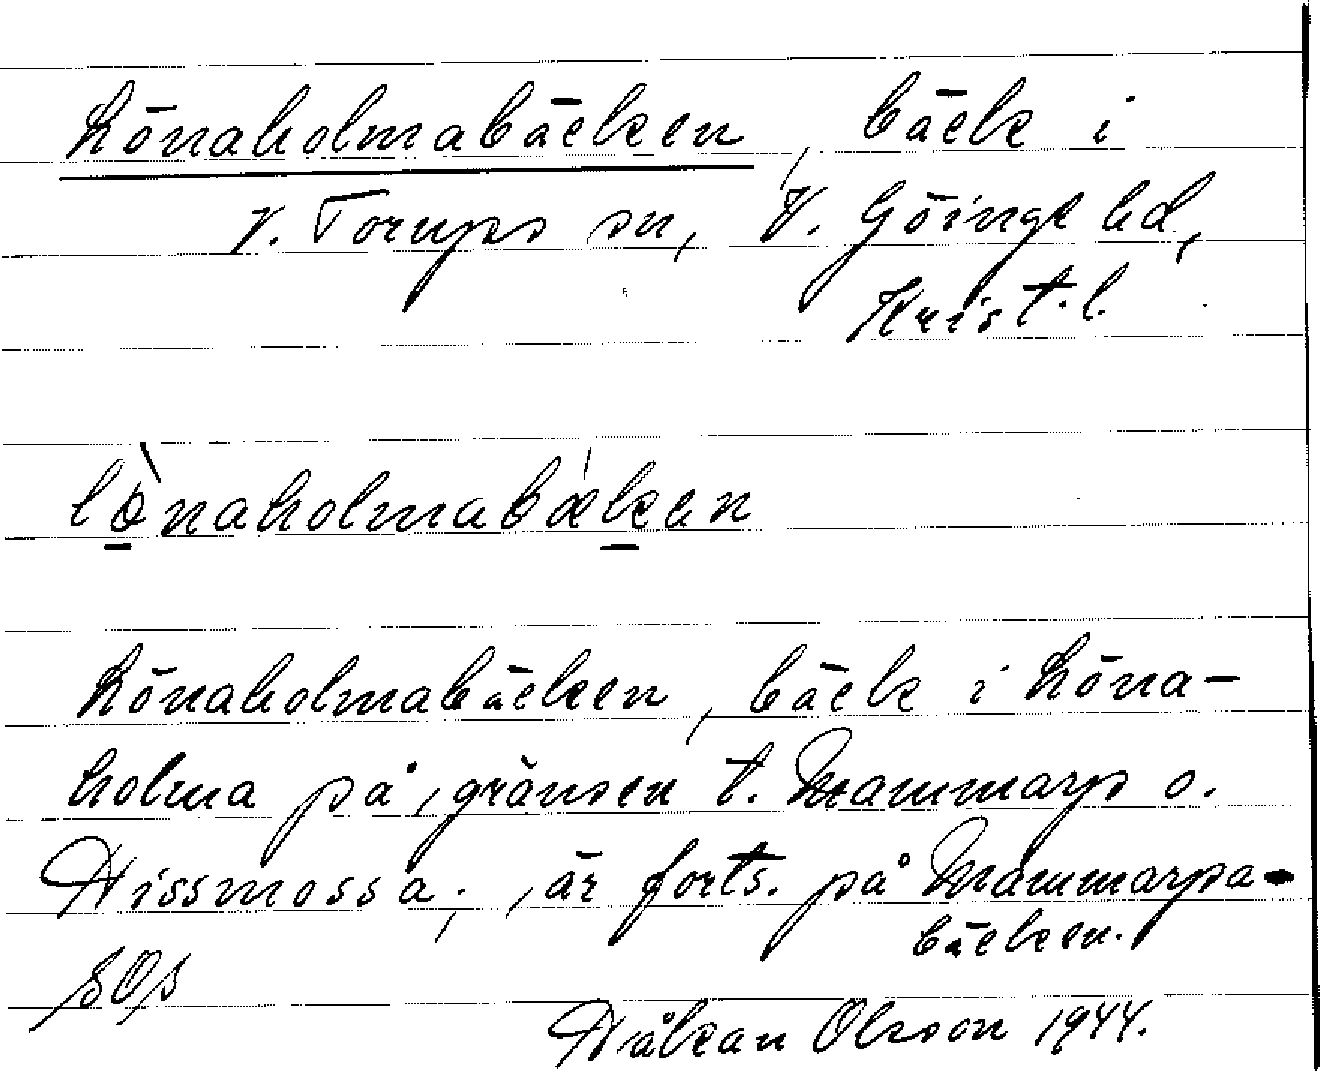 Lönaholmabäcken, bäck i
V. Torups sn, V. Göinge hd,
Krist. l.
lònaholmabæken
Lönaholmabäcken, bäck i Löna-
holma på gränsen t. Mammarp o.
Hissmossa; är forts. på Mammarpa-
bäcken.
SOS
Håkan Olsson 1944.